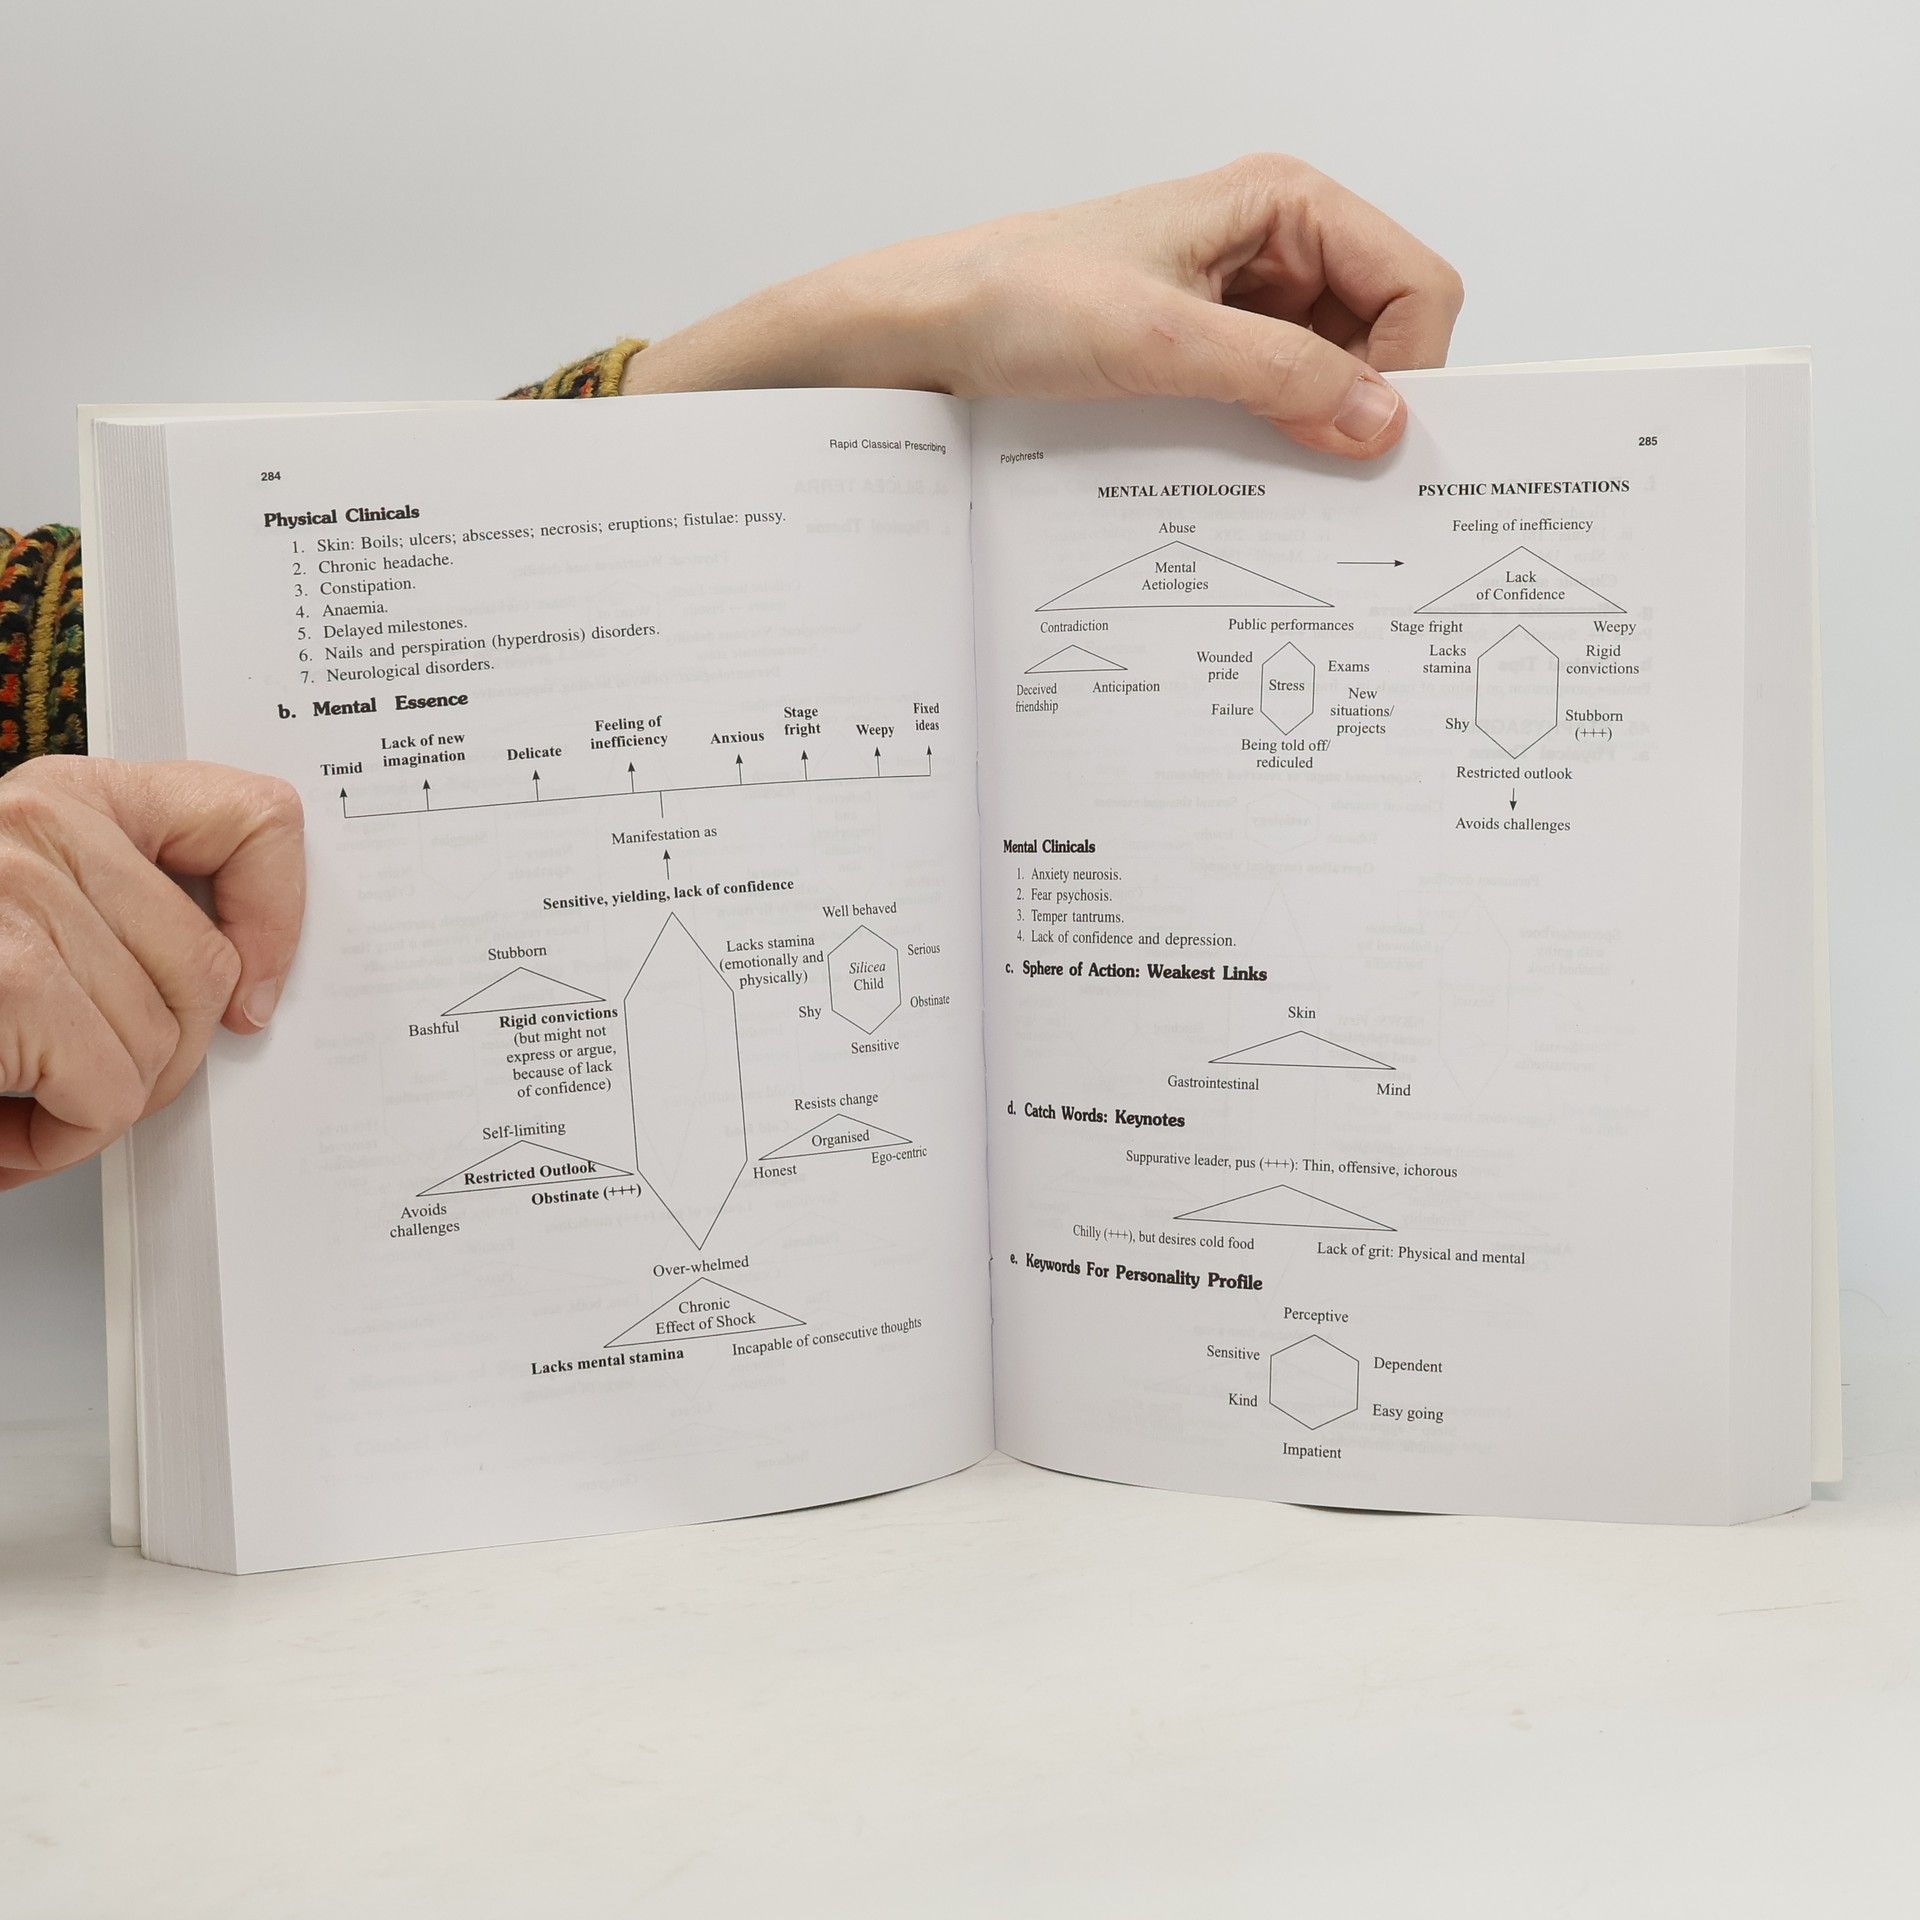 284
Rapid Classical Prescribing
Physical Clinicals
1. Skin: Boils; ulcers; abscesses; necrosis; eruptions; fistulae: pussy.
2. Chronic headache.
3. Constipation.
4. Anaemia.
5. Delayed milestones.
6. Nails and perspiration (hyperdrosis) disorders.
7. Neurological disorders.
b. Mental Essence
Timid
Lack of new
imagination
Delicate
Feeling of
inefficiency
Anxious
Stage
fright
Weepy
Fixed
ideas
Manifestation as
Sensitive, yielding, lack of confidence
Stubborn
Bashful
Rigid convictions
(but might not
express or argue,
because of lack
of confidence)
Lacks stamina
(emotionally and
physically)
Well behaved
Serious
Silicea
Child
Obstinate
Shy
Sensitive
Self-limiting
Restricted Outlook
Obstinate (+++)
Avoids
challenges
Resists change
Organised
Honest
Ego-centric
Over-whelmed
Chronic
Effect of Shock
Lacks mental stamina
Incapable of consecutive thoughts
Polychrests
285
MENTAL AETIOLOGIES
Abuse
Mental
Aetiologies
Contradiction
Public performances
Deceived
friendship
Anticipation
Wounded
pride
Stress
Exams
Failure
New
situations/
projects
Being told off/
rediculed
PSYCHIC MANIFESTATIONS
Feeling of inefficiency
Lack
of Confidence
Stage fright
Weepy
Lacks
stamina
Rigid
convictions
Shy
Stubborn
(+++)
Restricted outlook
Avoids challenges
Mental Clinicals
1. Anxiety neurosis.
2. Fear psychosis.
3. Temper tantrums.
4. Lack of confidence and depression.
c. Sphere of Action: Weakest Links
Skin
Gastrointestinal
Mind
d. Catch Words: Keynotes
Suppurative leader, pus (+++): Thin, offensive, ichorous
Chilly (+++), but desires cold food
Lack of grit: Physical and mental
e. Keywords For Personality Profile
Perceptive
Sensitive
Dependent
Kind
Easy going
Impatient